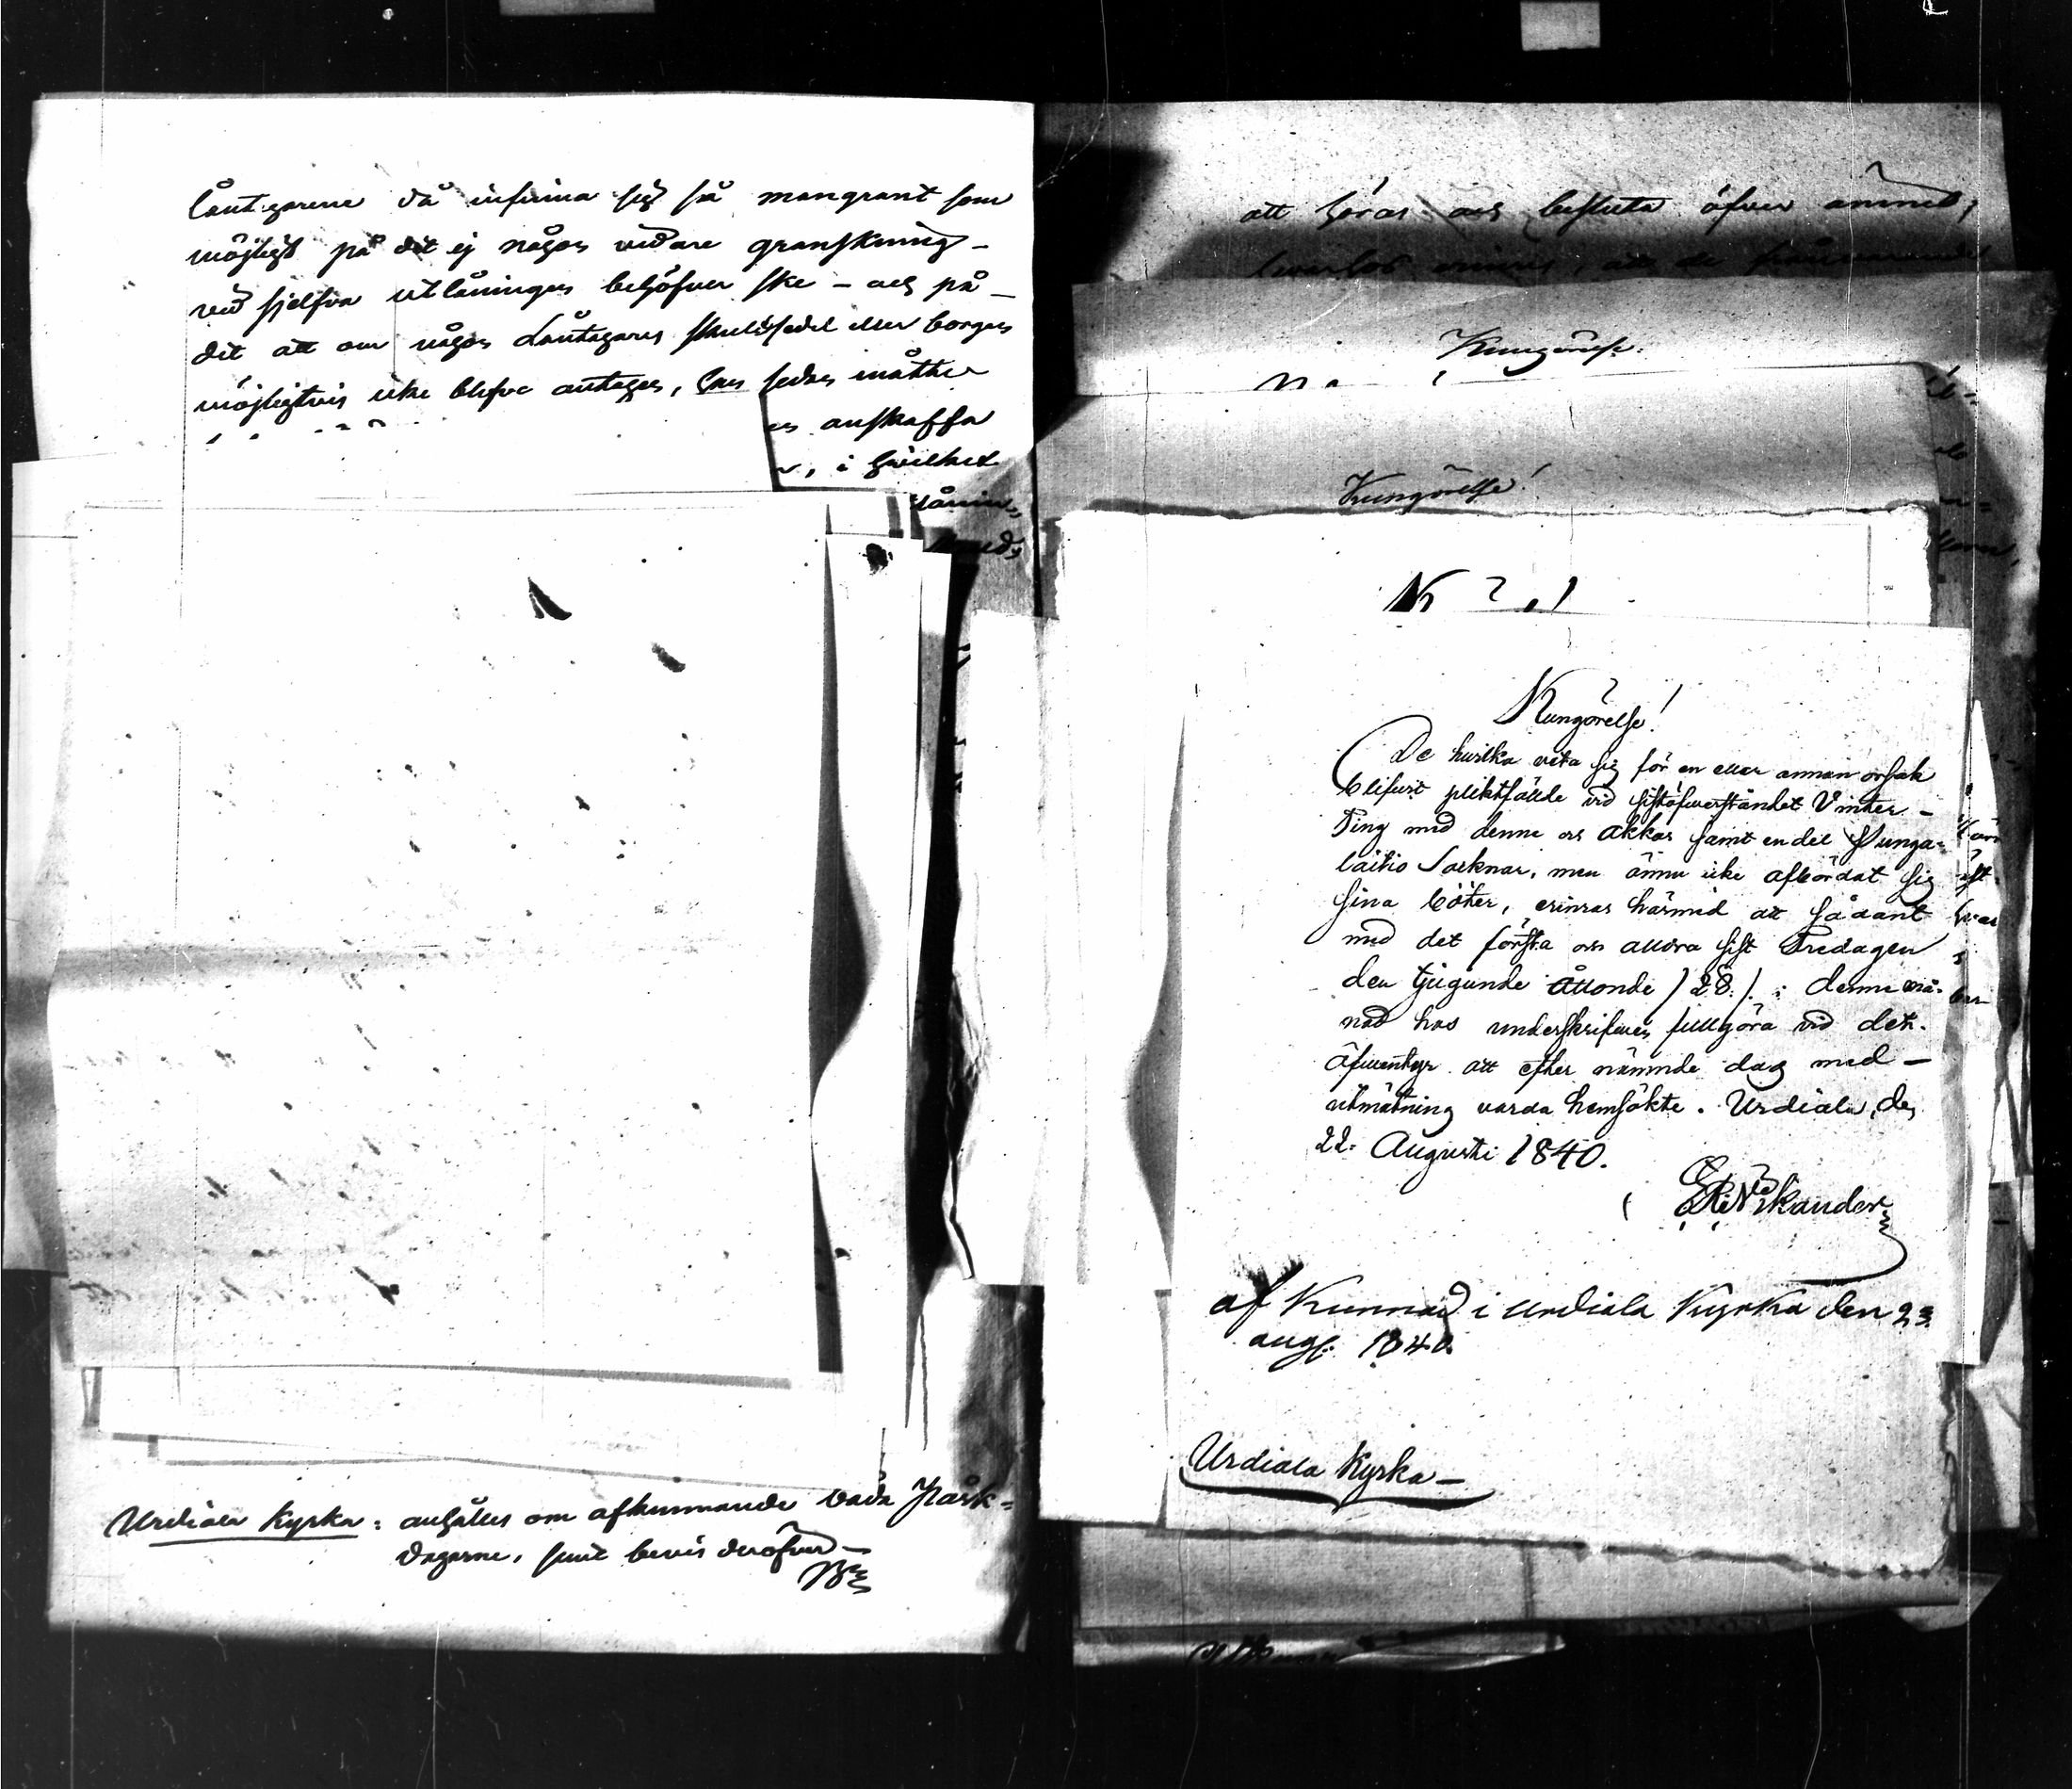 Låntagarene då infinna sig så mangrant som
möjligt på det ej någon vidare granskning –
vid sjelfva utlåningen behöfver ske – och på –
det att om någon Låntagares skuldsedel eller borgen
möjligtvis icke blefve antagen, han sedan måtte
anskaffa
, i hvilket
Urdiala Kyrka: anhålles om afkunnande båda Påsk-
dagarne, samt bevis deröfver –
att höras och besluta öfver ämnet,
Kungörelse.
Kungörelse!
Kungörelse!
De hvilka veta sig för en eller annan orsak
blifvit pliktfällde vid sistöfverståndet Vinter –
Ting med denne och Akkas samt en del Punga-
laitio Socknar, men ännu icke afbördat sig
sina böter, erinras härmed att sådant
med det första och alldra sist Fredagen
den tjugunde Åttonde /28./ i denne må-
nad hos underskrifven fullgöra vid det
äfventyr att efter nämnde dag med –
utmätning varda hemsökte. Urdiala, den
22. Augusti 1840.
Nikander
af Kunnad i urdiala Kyrka den 23
aug. 1840.
Urdiala Kyrka –